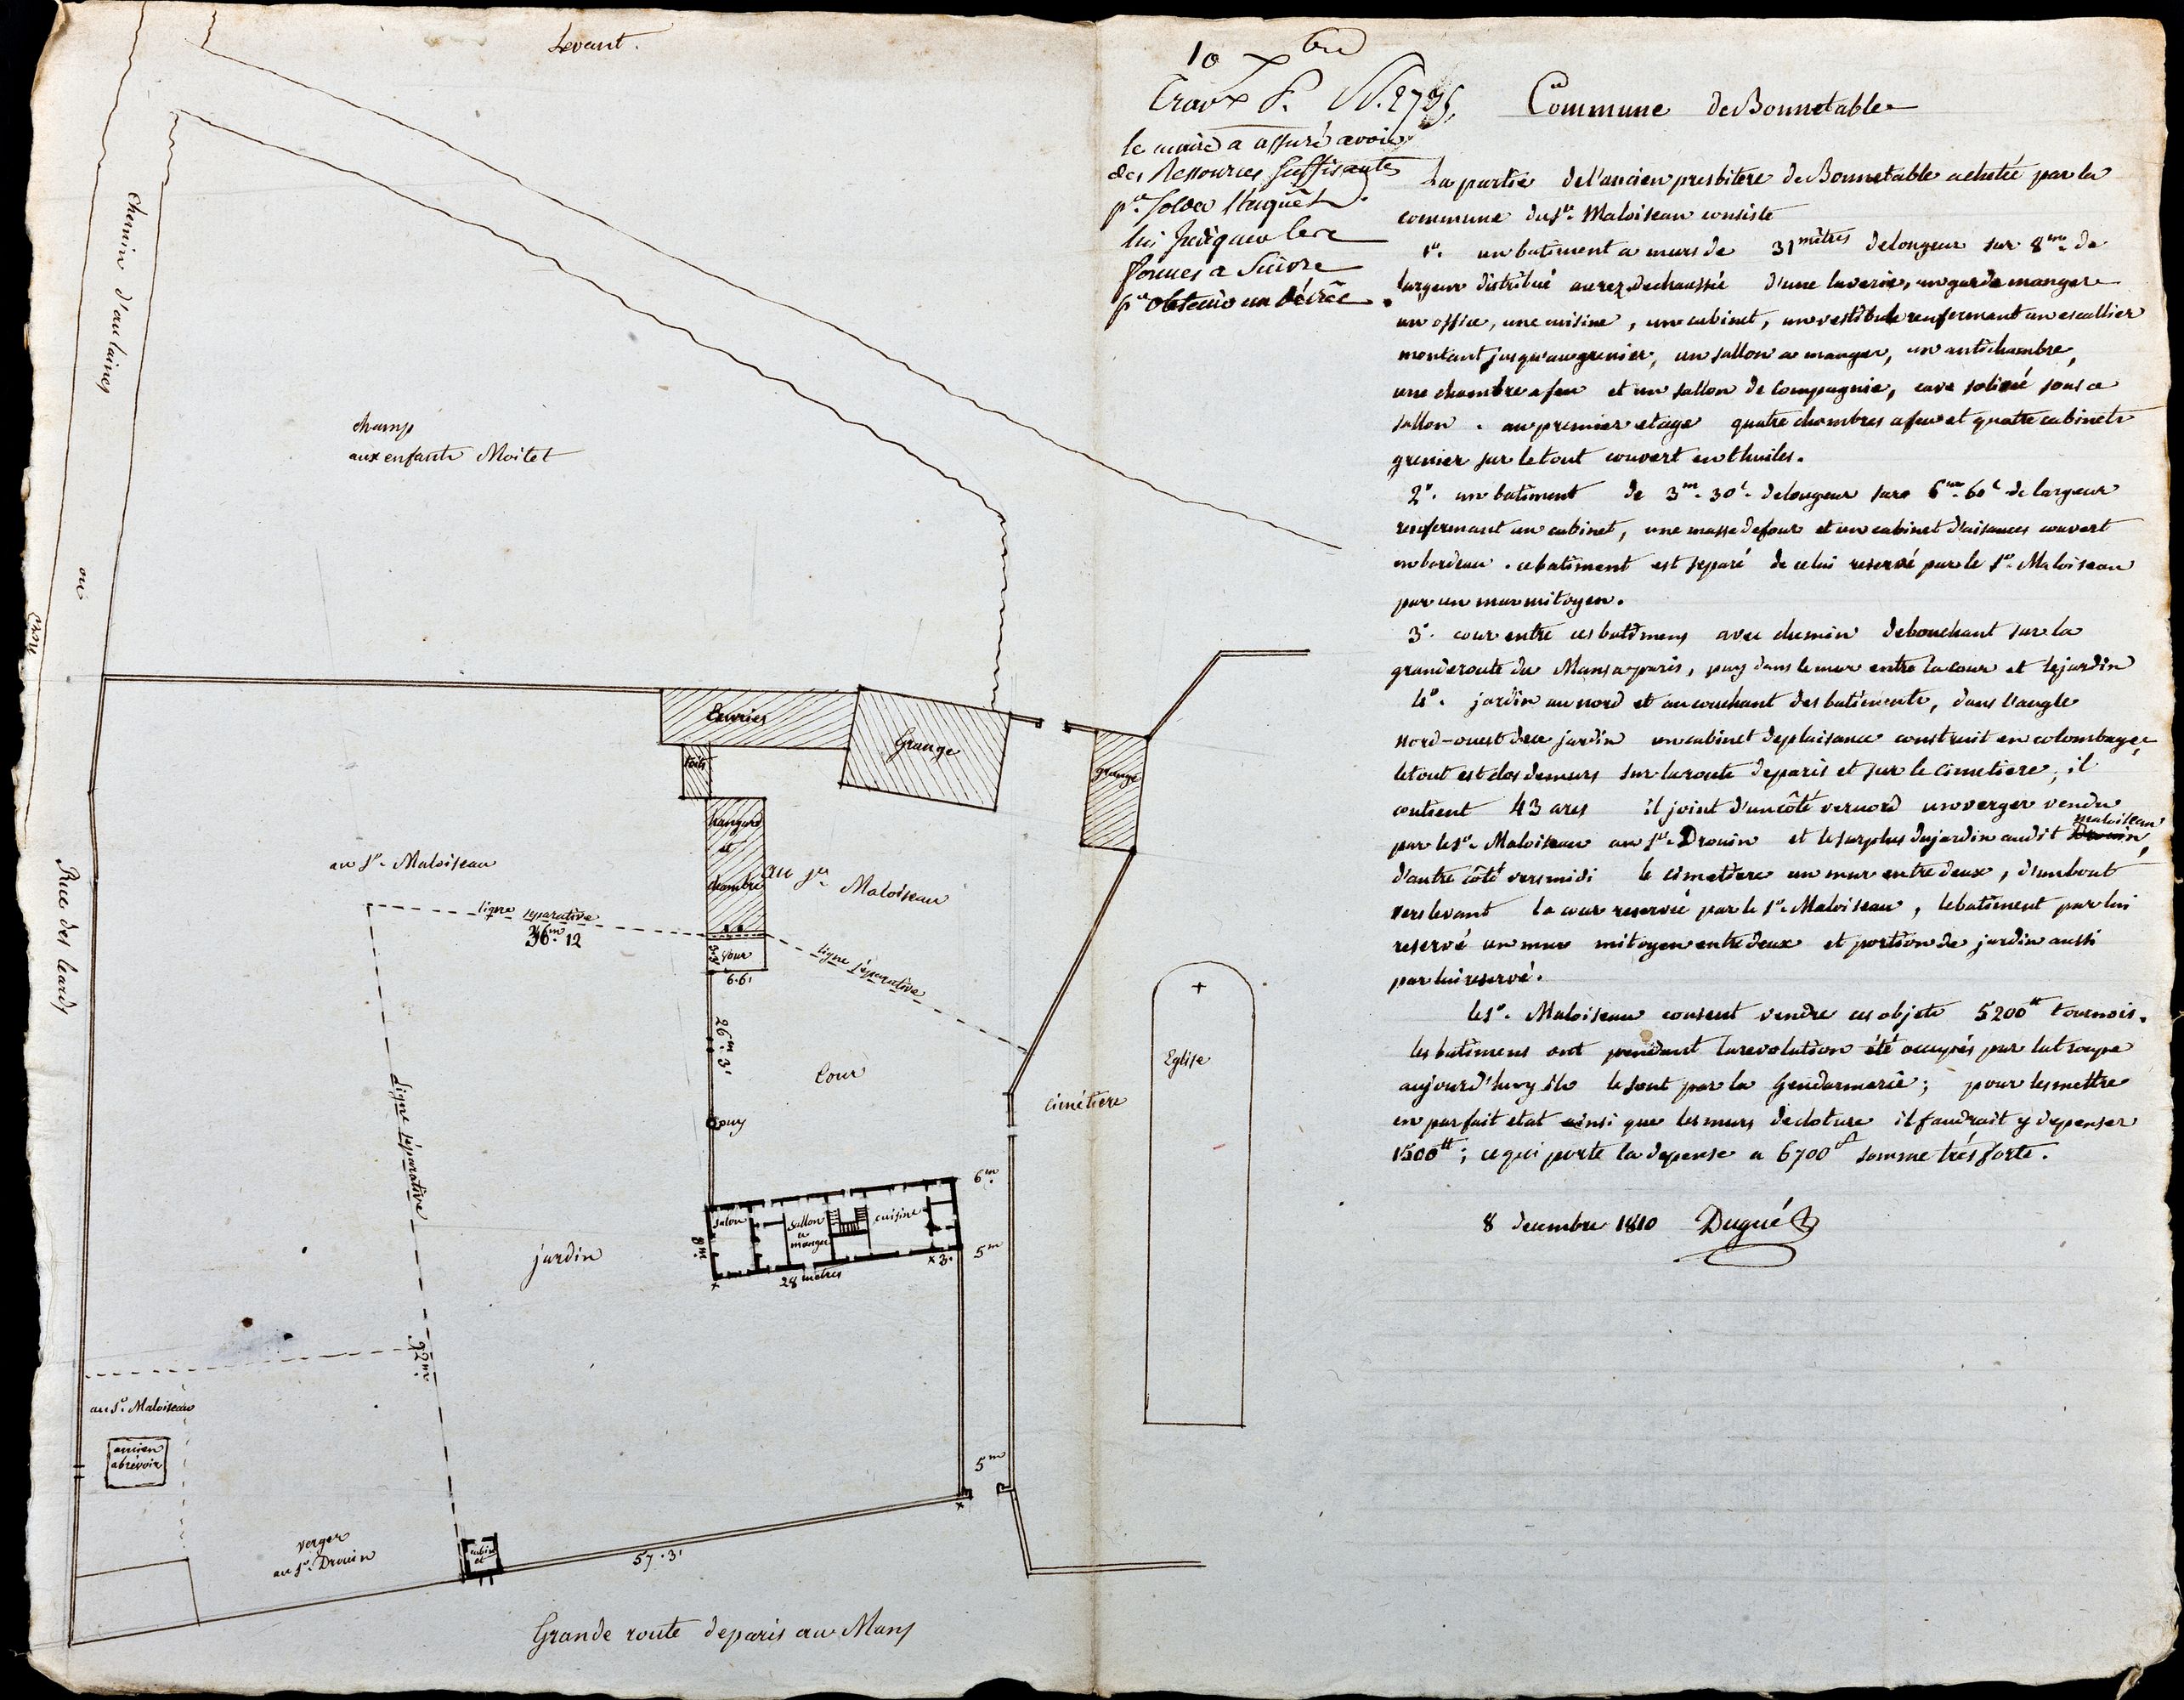 Levant.
chemin d'aulaines
ou
champ
aux enfants Moitet
Ecuries
Grange
toits
grange
hangard
et
chambre
au Sr. Maloiseau
au Sr. Maloiseau
ligne separative
36m. 12
four
6.6i
ligne séparative
26m. 3i
Rue des leards
Cour
Eglise
cimétiere
ligne séparative
puy
6m.
salon
sallon
a
manger
cuisine
8m.
5m
x 3.
28 mètres
jardin
92m.
au Sr. Maloiseau
ancien
abrévoir
5m
verger
au Sr. Drouin
cabin
et
57.3i
Grande route de paris au Mans
10 Xbre
Travx P.
le maire a assuré avoir
des Ressources suffisantes
pr. solder l'aquêt.
lui indiquer les
formes a suivre
pr obtenir un décret.
Commune de Bonnetable
La partie de l'ancien presbitere de Bonnetable achetée par la
commune du Sr. Maloiseau consiste
1o. un batiment a murs de 31 mètres de longeur sur 8m. de
largeur distribué au rez de chaussée d'une laverie, un garde manger
un office, une cuisine, un cabinet, un vestibule renfermant un escallier
montant jusqu'au grenier, un sallon a manger, un antichambre,
une chambre a feu et un sallon de compagnie, cave sous ce
sallon. au premier etage quatre chambres a feu et quatre cabinets
grenier sur le tout couvert en thuiles.
2o. un batiment de 3m. 30c. de longeur sur 6m. 60c de largeur
renfermant un cabinet, une masse de four et un cabinet d'aisances couvert
en bardeau. ce batiment est separé de celui reservé par le Sr. Maloiseau
par un mur mitoyen.
3o. cour entre ces batimens avec chemin debouchant sur la
grande route du Mans a paris, puy dans le mur entre la cour et le jardin
4o. jardin au nord et au couchant des batiments, dans l'angle
nord-ouest de ce jardin un cabinet de plaisance construit en colombage,
le tout est clos de murs sur la route de paris et sur le cimetiere, il
contient 43 ares il joint d'un côté ver nord un verger vendu
par le Sr. Maloiseau au Sr. Drouin et le surplus du jardin audit Drouin maloiseau,
d'autre côté vers midi le cimetiere un mur entre deux, d'un bout
vers levant la cour reservée par le Sr. Maloiseau, le batiment par lui
reservé un mur mitoyen entre deux et portion de jardin aussi
par lui reservé.
le Sr. Maloiseau consent vendre ces objets 5200tt tournois.
les batimens ont pendant la revolution été occupés par la troupe
aujourd'huy ils le sont par la Gendarmerie; pour les mettre
en parfait etat ainsi que les murs de cloture il faudrait y depenser
1500tt; ce qui porte la depense a 6700tt somme trés forte.
8 decembre 1810 Dugué